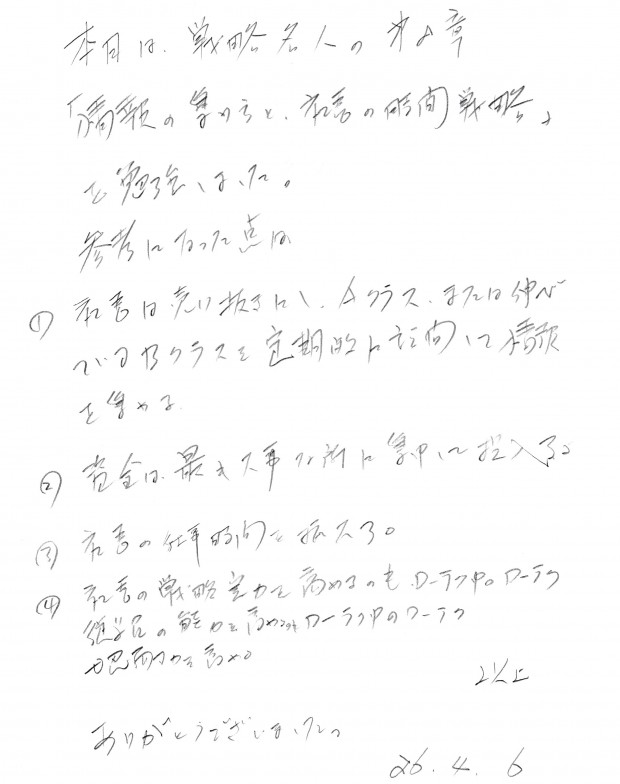 本日は、戦略名人の第8章
「情報の集め方と、社長の時間戦略」
を勉強しました。
参考になった点は
① 社長は売り抜きにし、Aクラス、または伸び
ているBクラスを定期的に訪問して情報
を集める。
② 資金は最も大事な所に集中して投入する
③ 社長の仕事時間を拡大する。
④ 社長の戦略実力を高めるのもローテク中のローテク
従業員の能力を高めるのもローテク中のローテク
忍耐力を高める
以上
ありがとうございました。
26. 4. 6